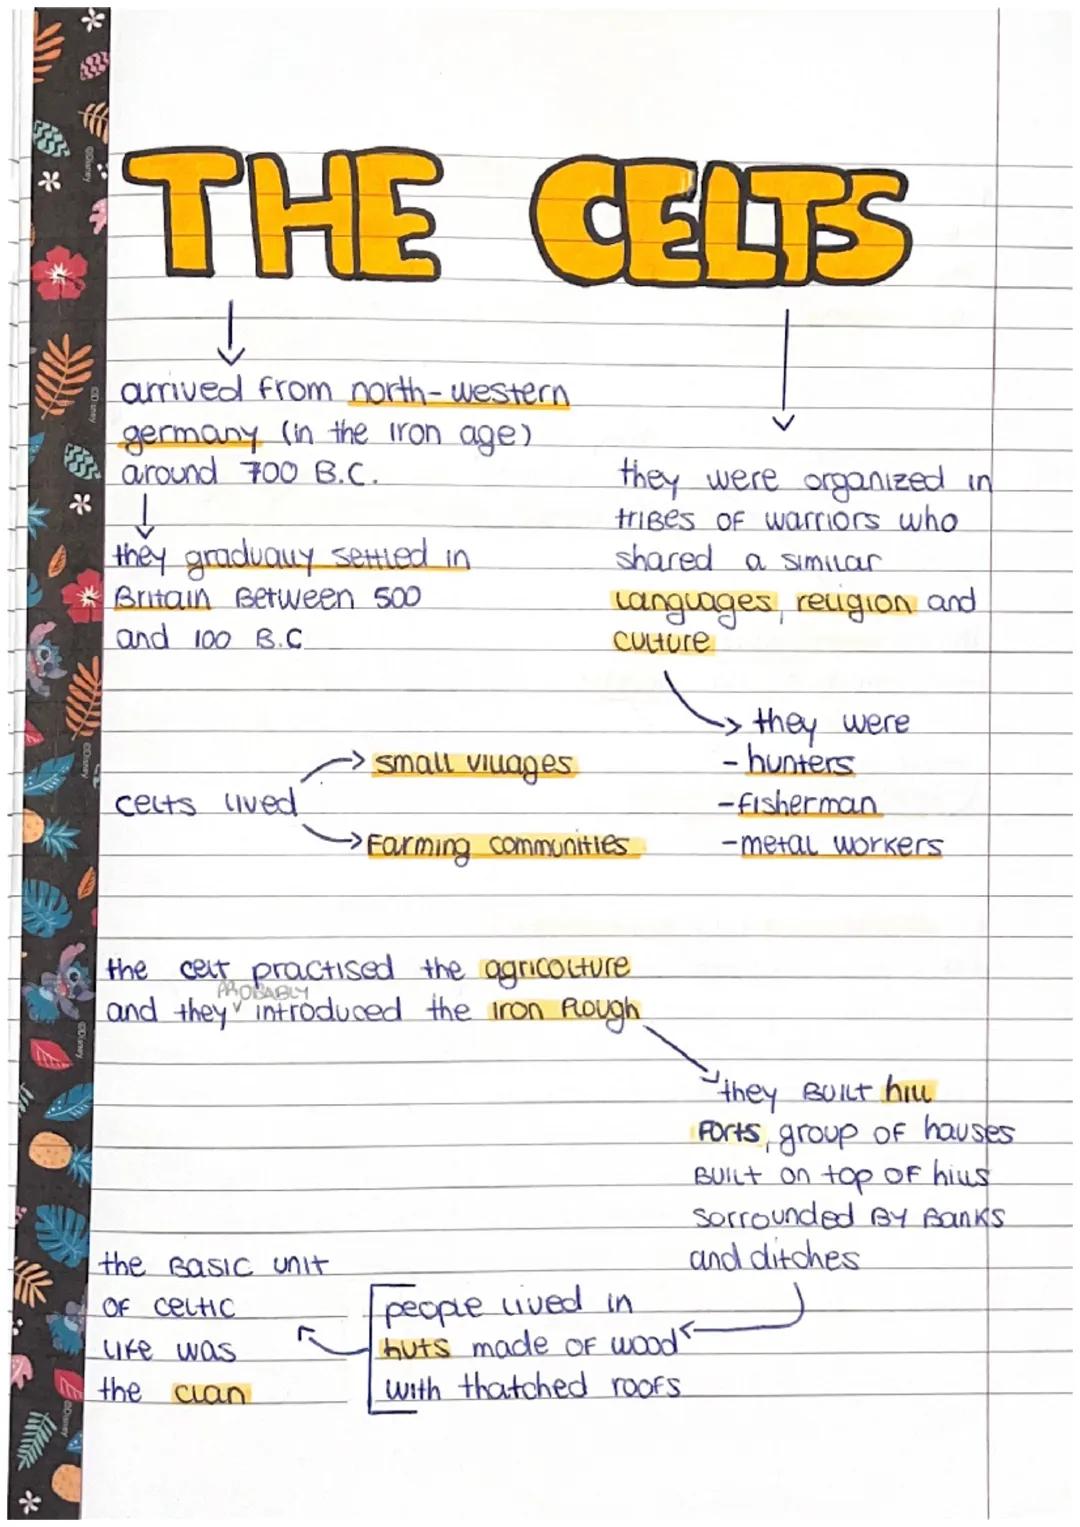 THE CELTS
arrived from north-western
germany (in the Iron age)
around 700 B.C.
they gradually settled in
Britain Between 500
and 100 B.C
they were organized in
tribes of warriors who
shared a similar
languages, religion and
culture
they were
- hunters
- fisherman
- metal workers
celts lived
small villages
Farming communities
the celt practised the agricolture
PROBABLY
and they v introduced the Iron Plough
they Built hill
Forts, group of hauses
Built on top of hills
sorrounded By Banks
and ditches
people lived in
huts made of wood
with thatched roofs
the Basic unit
of celtic
life was
the clan
©Disney
©Disney
©Disney
©Disney
©Disney